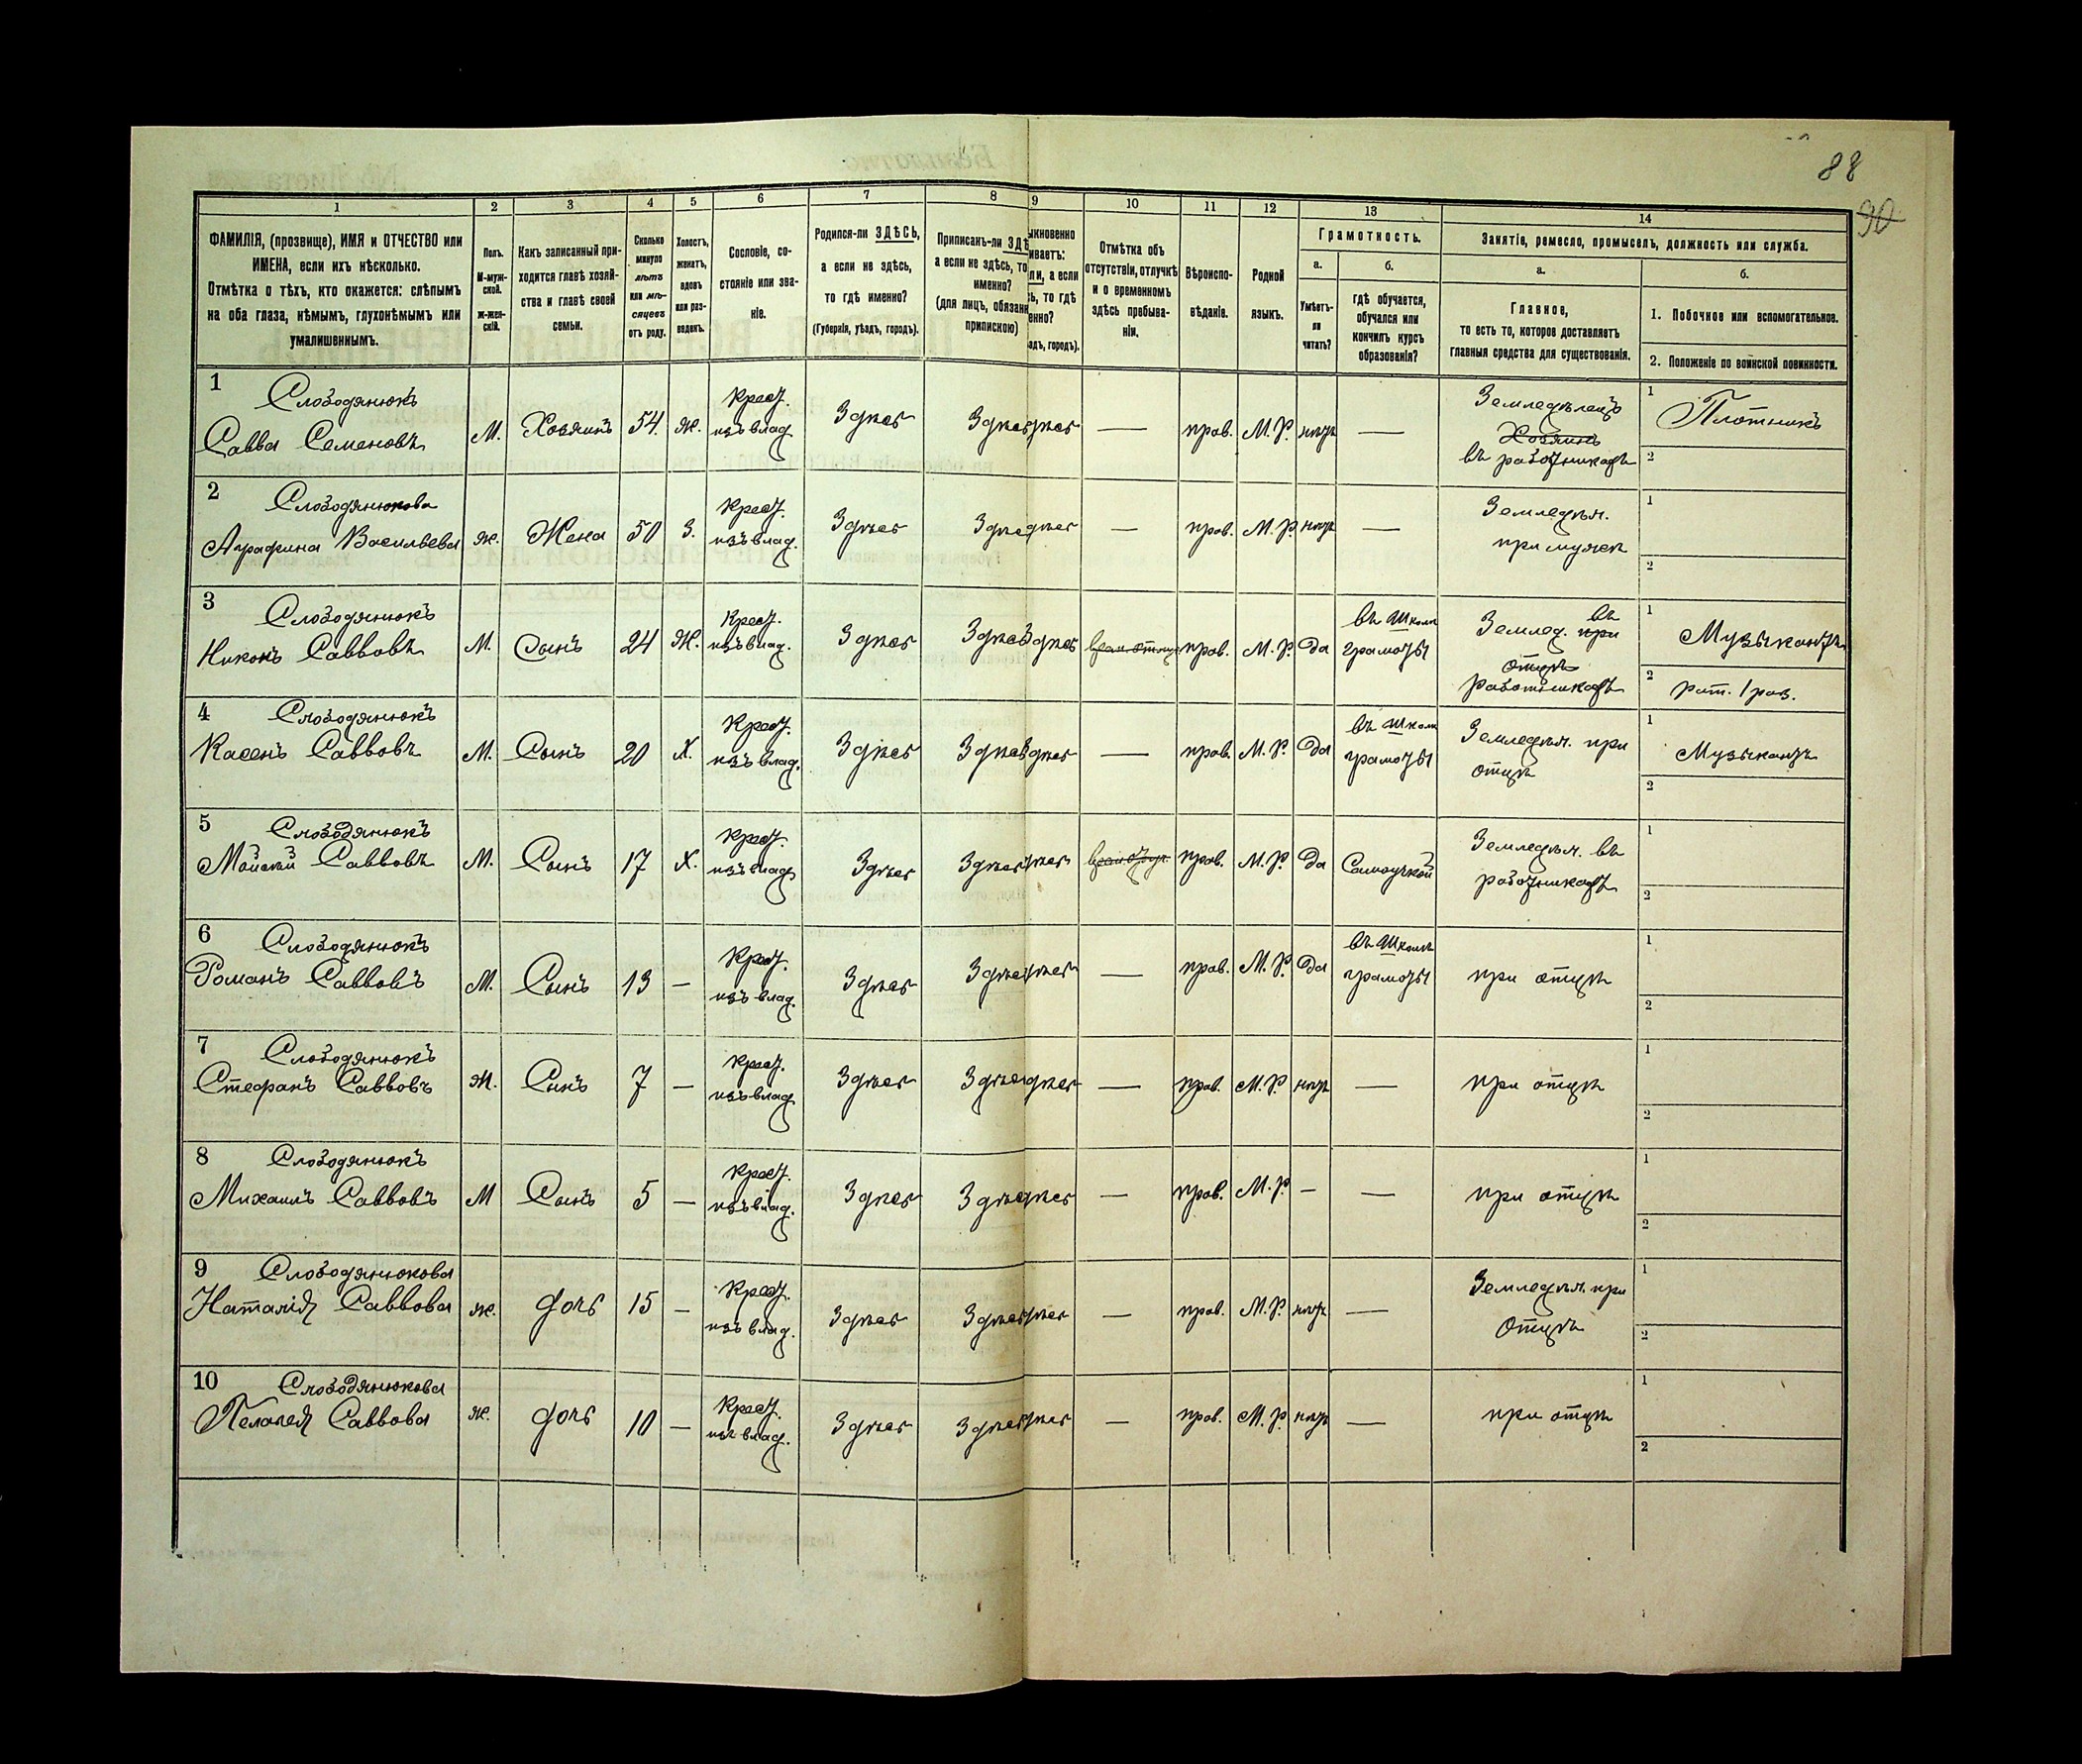 88
90
1
2
3
4
5
6
7
8
9
10
11
12
13
14
ФАМИЛІЯ, (прозвище), ИМЯ и ОТЧЕСТВО или
ИМЕНА, если ихъ нѣсколько.
Отмѣтка о тѣхъ, кто окажется: слѣпымъ
на оба глаза, нѣмымъ, глухонѣмымъ или
умалишеннымъ.
Полъ.
М-муж-
ской.
Ж-жен-
скій.
Какъ записанный при-
ходится главѣ хозяй-
ства и главѣ своей
семьи.
Сколько
минуло
лѣтъ
или мѣ-
сяцевъ
отъ роду.
Холостъ,
женатъ,
вдовъ
или раз-
веденъ.
Сословіе, со-
стояніе или зва-
ніе.
Родился-ли ЗДѢСЬ,
а если не здѣсь,
то гдѣ именно?
(Губернія, уѣздъ, городъ).
Приписанъ-ли ЗДѢ
а если не здѣсь, то
именно?
(для лицъ, обязанн
припискою)
ыкновенно
иваетъ:
ли, а если
ь, то гдѣ
енно?
здъ, городъ).
Отмѣтка объ
отсутствіи, отлучкѣ
и о временномъ
здѣсь пребыва-
ніи.
Вѣроиспо-
вѣданіе.
Родной
языкъ.
Грамотность.
а.
Умѣетъ-
ли
читать?
б.
гдѣ обучается,
обучался или
кончилъ курсъ
образованія?
Занятіе, ремесло, промыселъ, должность или служба.
а.
Главное,
то есть то, которое доставляетъ
главныя средства для существованія.
б.
1. Побочное или вспомогательное.
2. Положеніе по воинской повинности.
1 Слободянюкъ
Савва Семеновъ
М.
Хозяинъ
54.
Ж.
Крест.
изъ влад.
Здѣсь
Здѣсь
дѣсь
—
прав.
М. Р.
нѣтъ
—
Земледѣлецъ
Хозяинъ
въ работникахъ
1
Плотникъ
2
2 Слободянюкова
Аграфина Васильева
ж.
Жена
50
З.
Крест.
изъ влад.
Здѣсь
Здѣсь
дѣсь
—
прав.
М. Р.
нѣтъ
—
Земледѣл.
при мужѣ
1
2
3 Слободянюкъ
Никонъ Саввовъ
М.
Сынъ
24
Ж.
Крест.
изъ влад.
Здѣсь
Здѣсь
здѣсь
прав.
М. Р.
Да
въ школѣ
грамоты
въ
Землед. при
отцѣ
работникахъ
1
Музыкантъ
2
рат. 1 раз.
4 Слободянюкъ
Касенъ Саввовъ
М.
Сынъ
20
Х.
Крест.
изъ влад.
Здѣсь
Здѣсь
здѣсь
—
прав.
М. Р.
Да
въ школѣ
грамоты
Земледѣл. при
отцѣ
1
Музыкантъ
2
5 Слободянюкъ
Мойсей Саввовъ
М.
Сынъ
17
Х.
Крест.
изъ влад.
Здѣсь
Здѣсь
дѣсь
прав.
М. Р.
Да
Самоучкой
Земледѣл. въ
работникахъ
1
2
6 Слободянюкъ
Романъ Саввовъ
М.
Сынъ
13
—
Крест.
изъ влад.
Здѣсь
Здѣсь
дѣсь
—
прав.
М. Р.
Да
въ школѣ
грамоты
при отцѣ
1
2
7 Слободянюкъ
Стефанъ Саввовъ
М.
Сынъ
7
—
Крест.
изъ влад.
Здѣсь
Здѣсь
дѣсь
—
прав.
М. Р.
нѣтъ
—
при отцѣ
1
2
8 Слободянюкъ
Михаилъ Саввовъ
М
Сынъ
5
—
Крест.
изъ влад.
Здѣсь
Здѣсь
дѣсь
—
прав.
М. Р.
—
—
при отцѣ
1
2
9 Слободянюкова
Наталія Саввова
ж.
дочь
15
—
Крест.
изъ влад.
Здѣсь
Здѣсь
дѣсь
—
прав.
М. Р.
нѣтъ
—
Земледѣл. при
Отцѣ
1
2
10 Слободянюкова
Пелагея Саввова
ж.
дочь
10
—
Крест.
изъ влад.
Здѣсь
Здѣсь
дѣсь
—
прав.
М. Р.
нѣтъ
—
при отцѣ
1
2